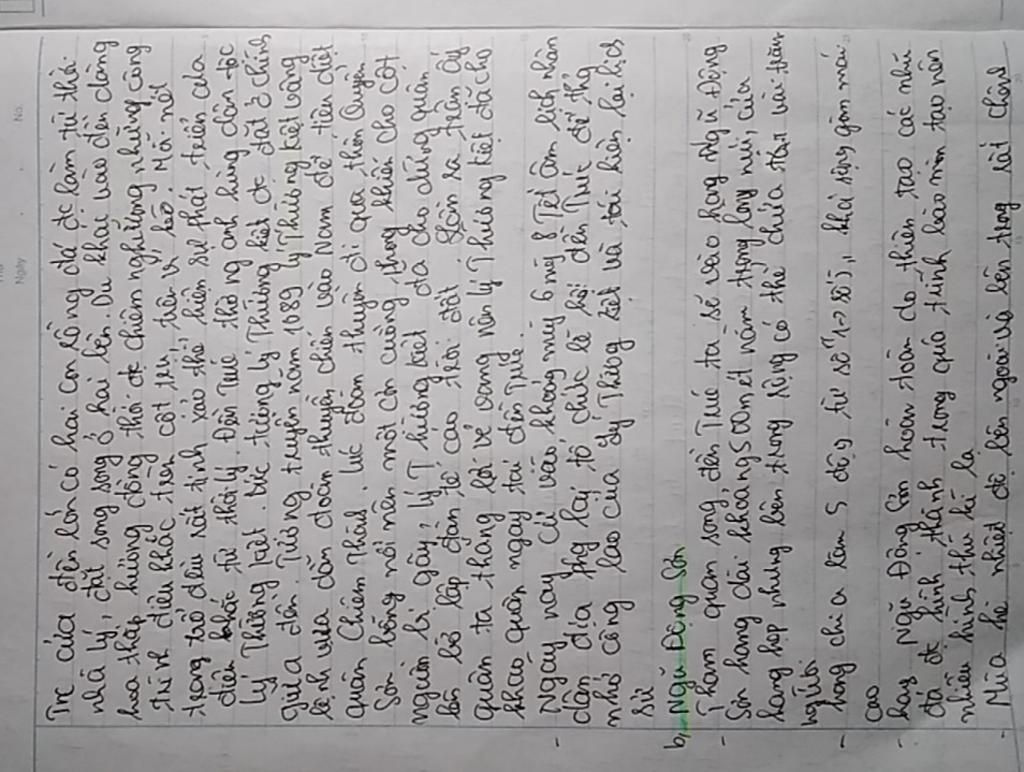 No.
Ngày
Trc cửa đền lớn có hai con rồng đá đc làm từ thời
nhà Lý, đặt song song ở hai bên. Du khách vào đền dâng
hoa thắp hương đồng thời đc chiêm ngưỡng những công
trình điêu khắc trên cột trụ, trên vì kèo. Mỗi nét
trạm trổ đều rất tinh xảo thể hiện sự phát triển của
điêu khắc từ thời lý. Đền Trúc thờ ng anh hùng dân tộc
Lý Thường Kiệt. Bức tượng lý Thường Kiệt đc đặt ở chính
giữa đền. Tương truyền năm 1089 lý Thường Kiệt vâng
lệnh vua dẫn đoàn thuyền chiến vào Nam để tiêu diệt
quân Chiêm Thành. Lúc đoàn thuyền đi qua thôn Quyển
Sơn bỗng nổi nên một cơn cuồng phong khiến cho cột
nguồn bị gãy, lý Thường Kiệt đã cho dừng quân
lên bờ lập đàn tế cáo trời đất. Sau trận ấy
quân ta thắng lợi vẻ vang nên lý Thường Kiệt đã cho
khao quân ngay tại đền Trúc.
- Ngày nay cứ vào khoảng mùng 6 mùng 8 Tết Âm lịch nhân
dân địa phg lại tổ chức lễ hội đền Trúc để tg
nhớ công lao của Lý Thường Kiệt và tái hiện lại lịch
sử
b, Ngũ Động Sơn
- Tham quan song, đền Trúc ta sẽ vào hang Ngũ Động
Sơn hang dài khoảng 500 mét nằm trong lòng núi, cửa
hang hẹp nhưng bên trong rộng có thể chứa đựng vài trăm
người
- hang chia làm 5 động từ số "1 -> số 5", khá rộng gồm mái
cao
- hang Ngũ Động Sơn hoàn toàn do thiên tạo các nhũ
đá đc hình thành trong quá trình bào mòn tạo nên
nhiều hình thù kì lạ
- Mùa hè nhiệt độ bên ngoài và bên trong rất chênh